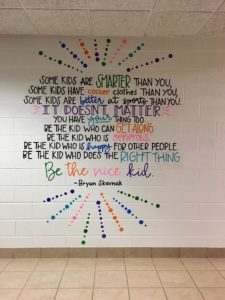 SOME KIDS ARE SMARTER THAN YOU,
SOME KIDS HAVE cooler clothes THAN YOU,
SOME KIDS ARE better at sports THAN YOU.
IT DOESN'T MATTER.
YOU HAVE your THING TOO.
BE THE KID WHO CAN GET ALONG.
BE THE KID WHO IS generous.
BE THE KID WHO IS happy FOR OTHER PEOPLE.
BE THE KID WHO DOES THE RIGHT THING
Be the nice kid.
~Bryan Skavnak